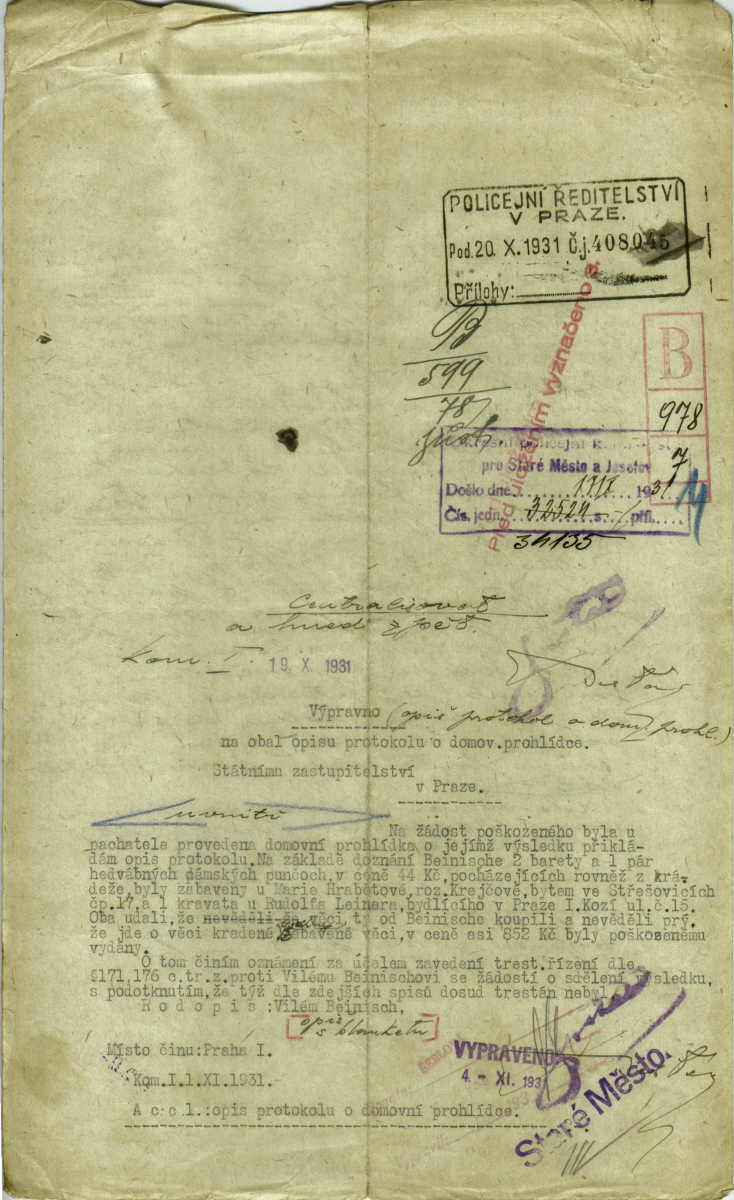 POLICEJNÍ ŘEDITELSTVÍ
V PRAZE.
Pod. 20. X. 1931 Č.j. 408045
Přílohy:
599
78
B
978
7
14
Před uložením vyznačeno s.
pro Staré Město a Josefov
Došlo dne 17/X 1931
Čís. jedn. 32524 s. příl.
34135
Centralisovat
a hned zpět.
Kom. I. 19. X. 1931
Výpravno (opis protokol o dom. prohl.)
na obal opisu protokolu o domov.prohlídce.
Státnímu zastupitelství
v Praze.
uvnitř
Na žádost poškozeného byla u
pachatele provedena domovní prohlídka,o jejímž výsledku přiklá-
dám opis protokolu.Na základě doznání Beinische 2 barety a 1 pár
hedvábných dámských punčoch,v ceně 44 Kč,pocházejících rovněž z krá-
deže,byly zabaveny u Marie Hrabětové,roz.Krejčové,bytem ve Střešovicích
čp.17,a 1 kravata u Rudolfa Leinera,bydlícího v Praze I.Kozí ul.č.15.
Oba udali,že nevěděli že věci,ty od Beinische koupili a nevěděli prý,
že jde o věci kradené Zabavené věci,v ceně asi 852 Kč byly poškozenému
vydány.
O tom činím oznámení za účelem zavedení trest.řízení dle
§171,176 c.tr.z.proti Vilému Beinischovi se žádostí o sdělení výsledku,
s podotknutím,že týž dle zdejších spisů dosud trestán nebyl.
Rodopis:Vilém Beinisch,
opis
s blanketu
Místo činu:Praha I.
VYPRAVENO
4. - XI. 1931
Kom.I.1.XI.1931.-
Staré Město.
Accl.:opis protokolu o domovní prohlídce.